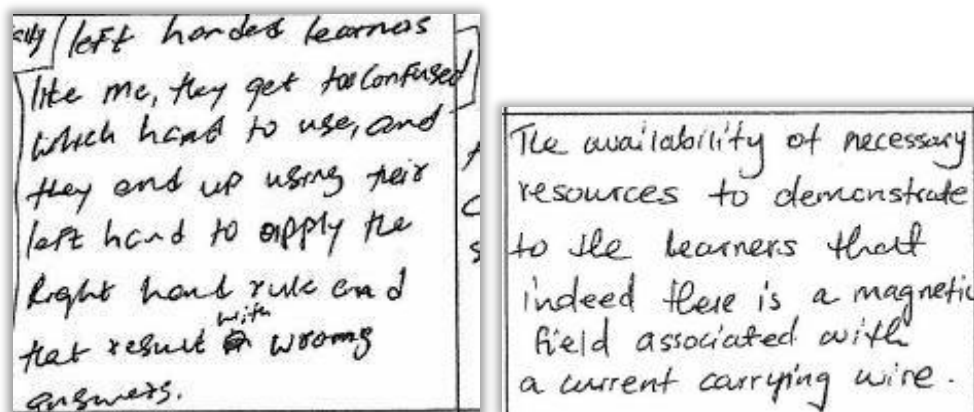 left handed learners
like me, they get too confused
which hand to use, and
they end up using their
left hand to apply the
Right hand rule and
that result with wrong
answers.
The availability of necessary
resources to demonstrate
to the learners that
indeed there is a magnetic
field associated with
a current carrying wire.